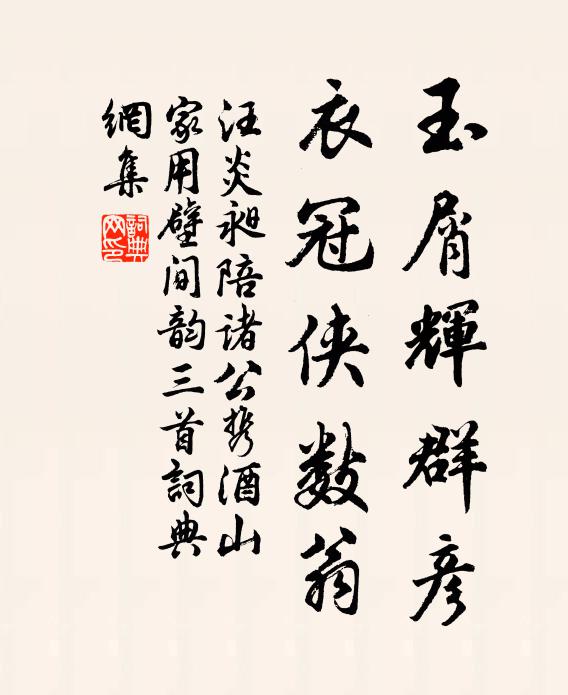 玉屑輝群彦
衣冠俠数翁
汪炎昶陪诸公携酒山
家用壁间韵三首詞典
網集
詞典
网印